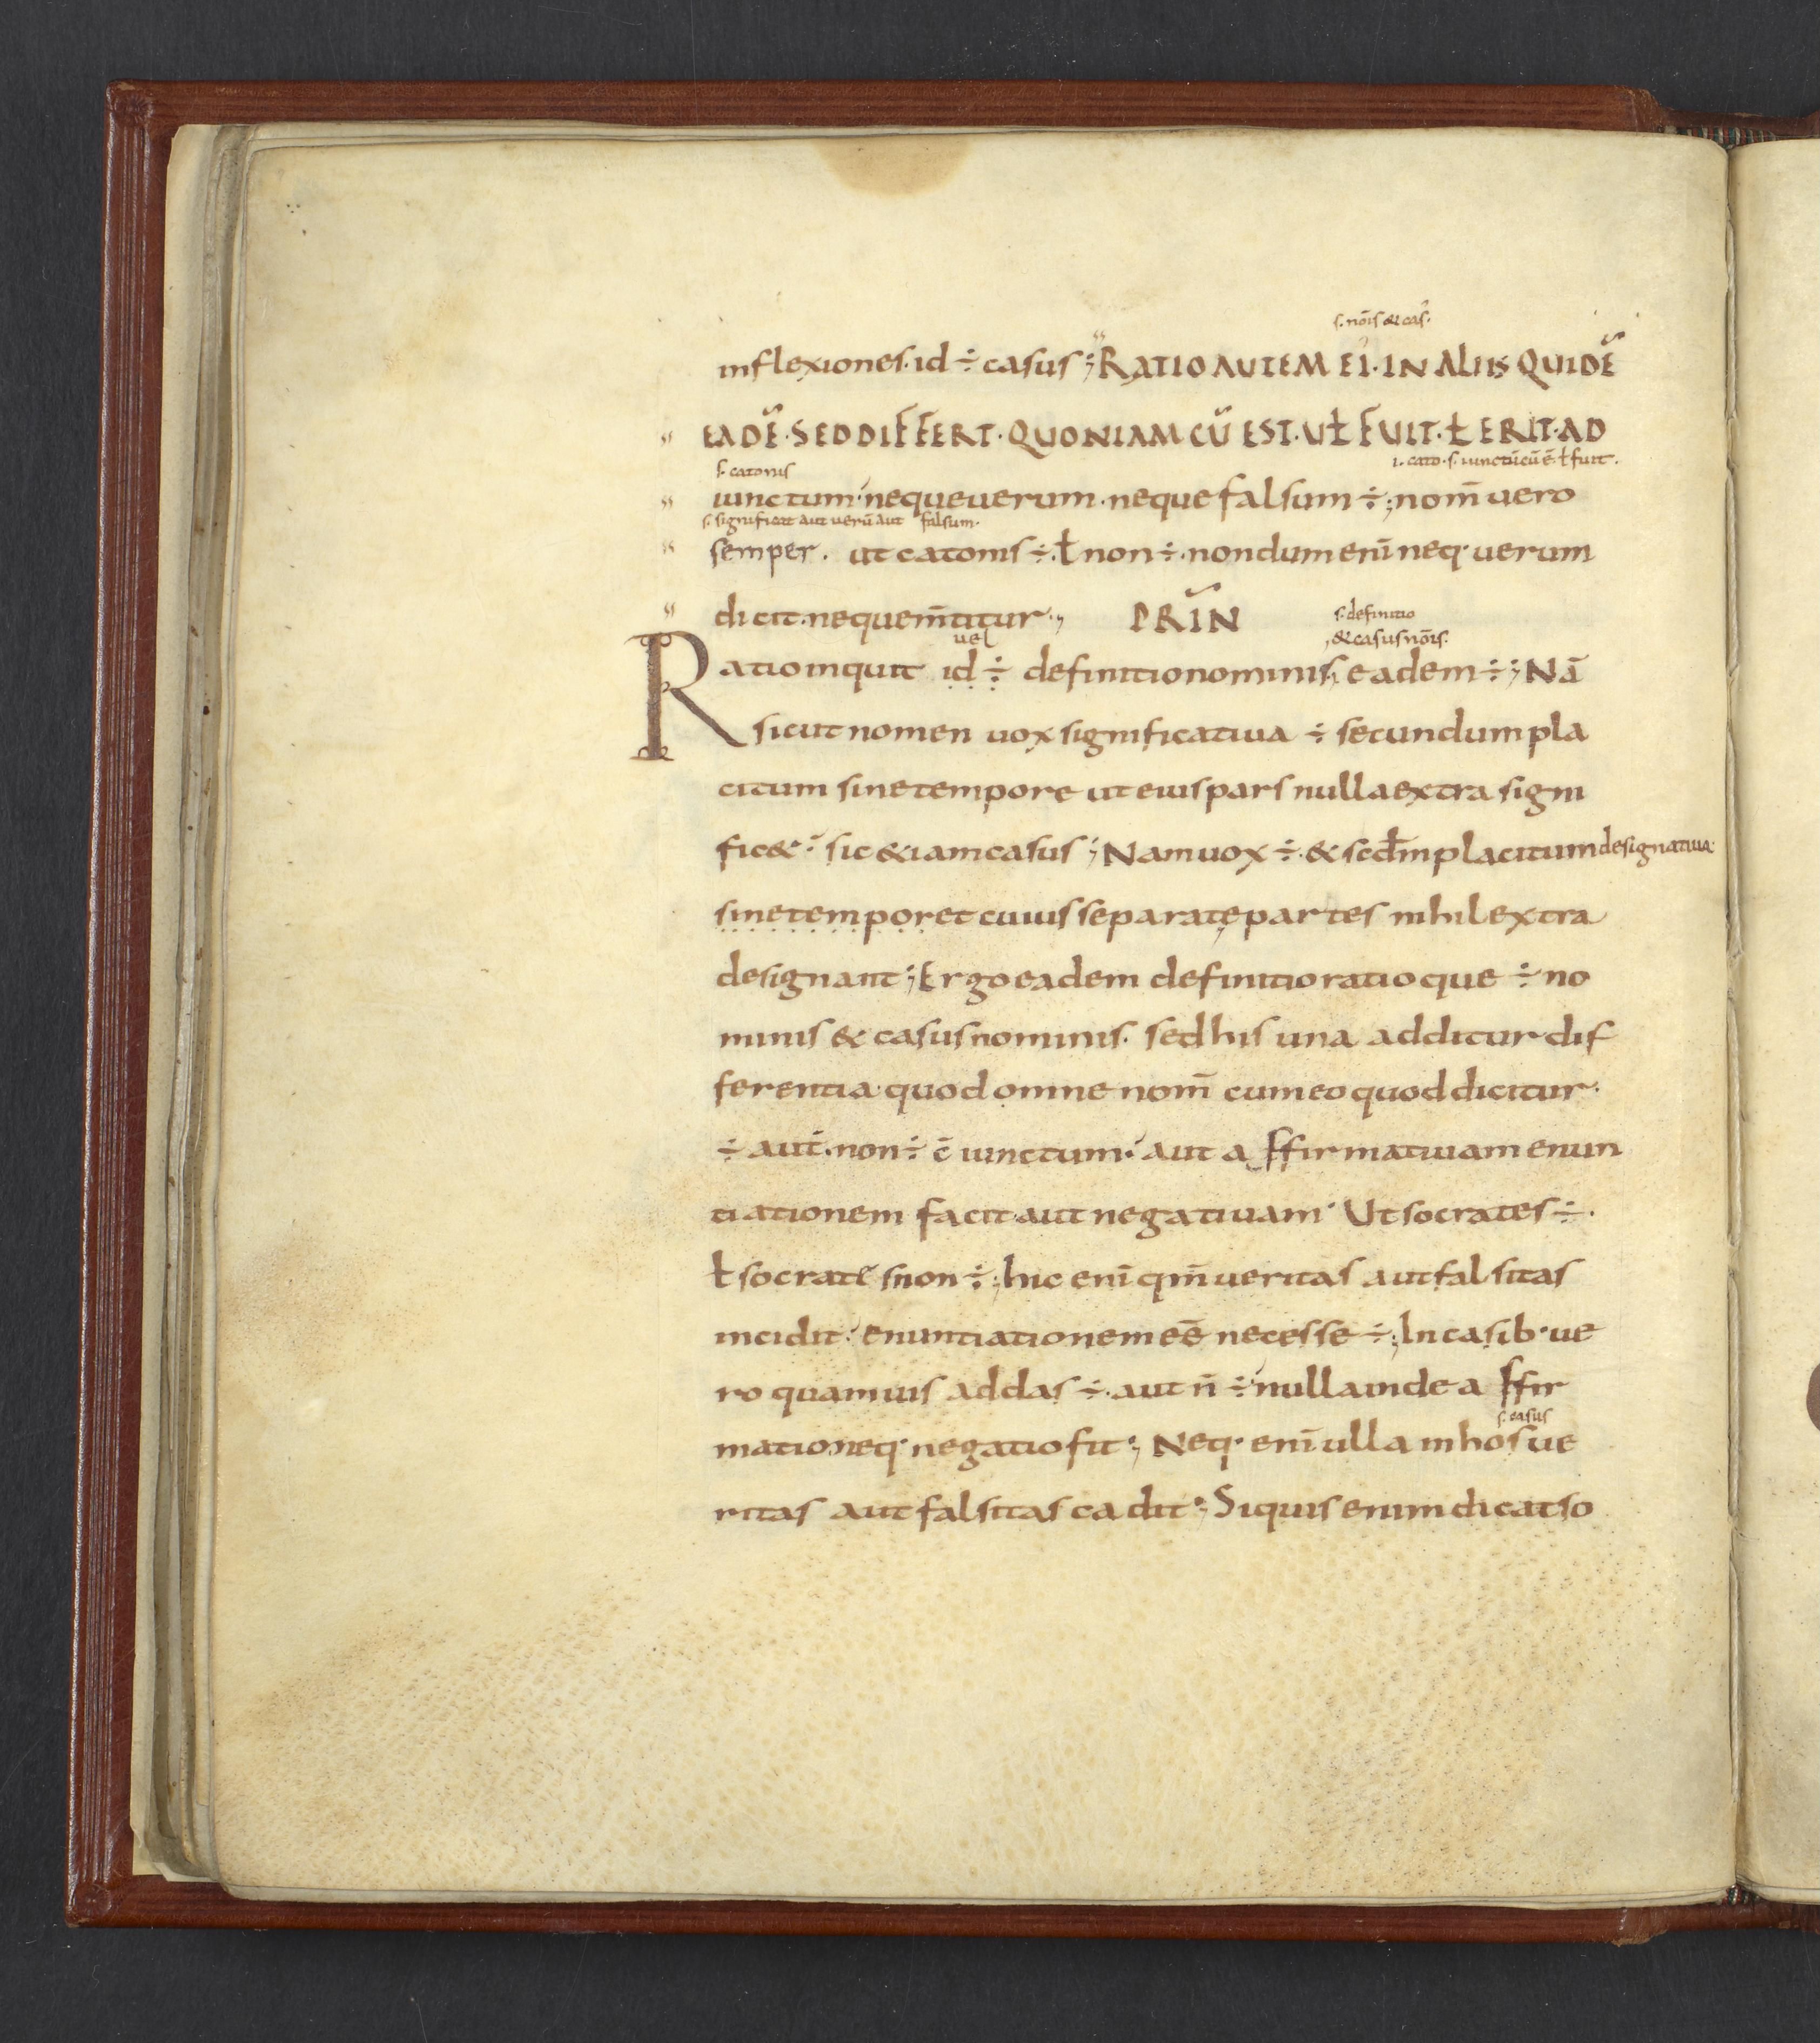 s. nōis & cas̛.
inflexiones. id ÷ casus ; RATIO AUTEM EI̛. IN ALIIS QUIDĒ
EADĒ. SED DIFFERT. QUONIAM CŪ EST. Uł FUIT. ł ERIT. AD
s. catonis i. cato. s. iunctū cū ē ł fuit.
iunctum. neque uerum. neque falsum ÷; nom̄ uero
s. significat aut uerū aut falsum.
semper. ut catonis ÷. ł non ÷. nondum eni̅ neq· uerum
dicit. neque m̄titur·, PRIN̄ s. definitio
uel & casus nōis.
Ratio inquit id ÷ definitio nominis, eadem ÷; Nā
sicut nomen uox significatiua ÷ secundum pla
citum sine tempore ut eius pars nulla extra signi
fic&· sic &iam casus; Nam uox ÷· & scd̄m placitum designatiua·
sine temporet cuius separatę partes nihil extra
designant; Ergo eadem definitio ratioque ÷ no
minis & casus nominis. sed his una additur dif
ferentia quod omne nom̄ cum eo quod dicitur·
÷ aut. non ÷ c̄ iunctum· aut affirmatiuam enun
tiationem facit aut negatiuam· Ut socrates ÷.
ł socrates non ÷; hic eni̅ qm̄ ueritas aut falsitas
incidit· enuntiationem eē necesse ÷; In casib· ue
ro quamuis addas ÷. aut n̄ ÷ nulla inde affir
s. casus
matio neq· negatio fit·; Neq· eni̅ ulla in hos ue
ritas aut falsitas cadit·; Si quis enim dicat so